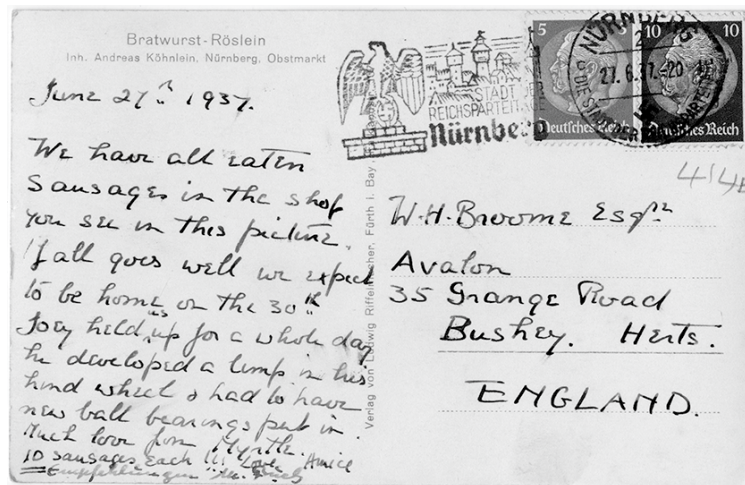 Bratwurst-Röslein
Inh. Andreas Köhnlein, Nürnberg, Obstmarkt
June 27th 1937.
We have all eaten
sausages in the shop
you see in this picture.
If all goes well we expect
to be home on the 30th
Joey held us up for a whole day
he developed a limp in his
hind wheel & had to have
new ball bearings put in.
Much love from Myrtle.
10 sausages each !!! Love
Empfehlungen
Verlag von Ludwig Riffelmacher, Fürth i. Bay.
STADT
REICHSPARTEITAGE
Nürnberg
NÜRNBERG
2
27.6.37.-20
DIE STADT DER REICHSPARTEITAGE
5
Deutsches Reich
10 10
Deutsches Reich
W.H. Broome Esqre
Avalon
35 Grange Road
Bushey. Herts.
ENGLAND.